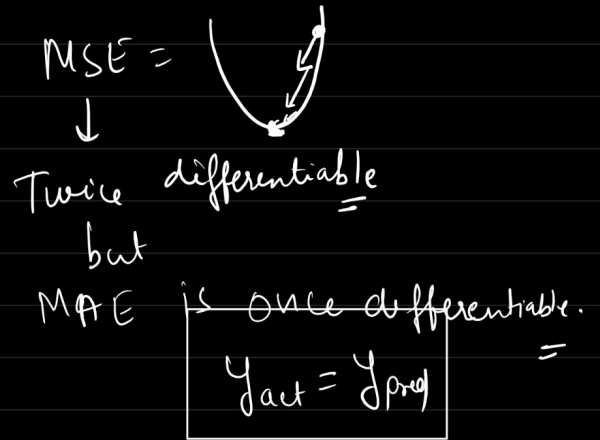 MSE =
Twice differentiable
but
MAE is once differentiable.
yact = ypred